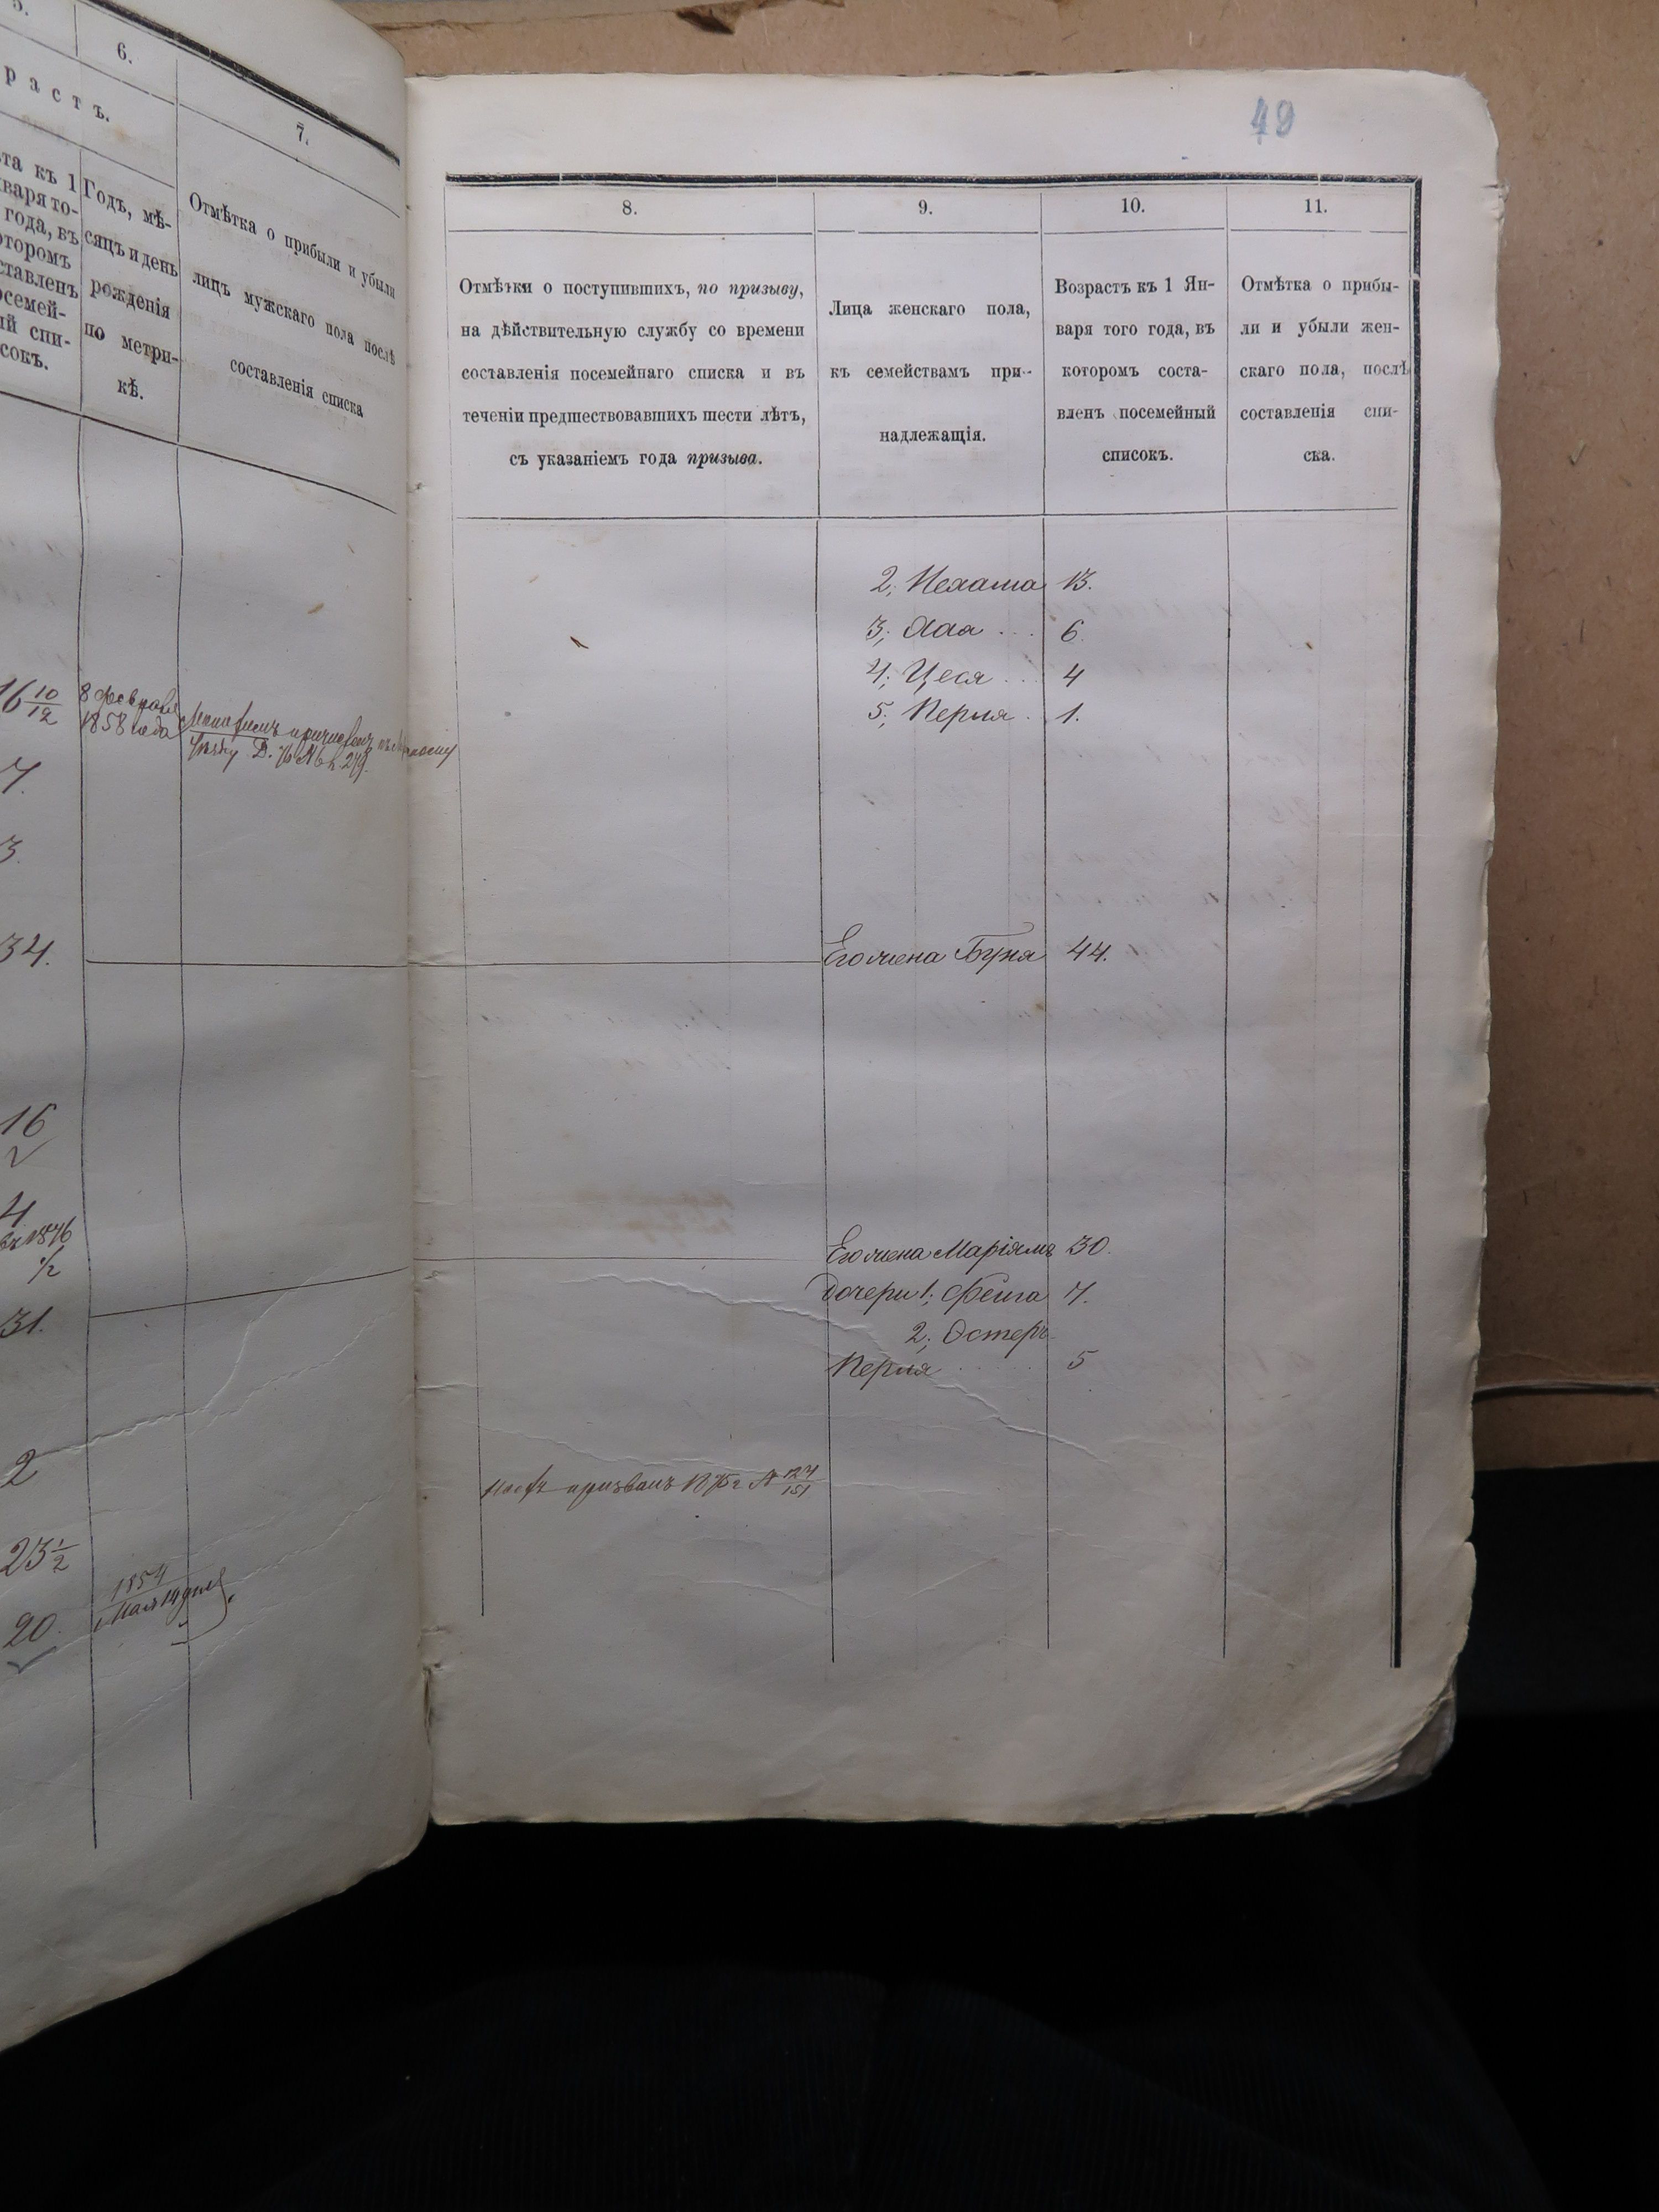 5.
6.
7.
растъ.
та къ 1
варя то-
года, въ
отормъ
ставленъ
осемей-
ый спи-
сокъ.
Годъ, мѣ-
сяцъ и день
рожденія
по метри-
кѣ.
Отмѣтка о прибыли и убыли
лицъ мужскаго пола послѣ
составленія списка
16 10/12
8 февраля
1858 года
7.
3.
34.
16
4
въ 1876
1/2
31.
2
23 1/2
20.
1854
Мая 14 дня
49
8.
9.
10.
11.
Отмѣтки о поступившихъ, по призыву,
на дѣйствительную службу со времени
составленія посемейнаго списка и въ
теченіи предшествовавшихъ шести лѣтъ,
съ указаніемъ года призыва.
Лица женскаго пола,
къ семействамъ при-
надлежащія.
Возрастъ къ 1 Ян-
варя того года, въ
котормъ соста-
вленъ посемейный
списокъ.
Отмѣтка о прибы-
ли и убыли жен-
скаго пола, послѣ
составленія спи-
ска.
2; Нехама 13.
3; Хая 6.
4; Цеся 4
5; Перля 1.
Его жена Буня 44.
Его жена Маріямъ 30.
Дочери 1; Фейга 7.
2; Эстеръ-
Перля 5
призванъ 1875 г № 124/151